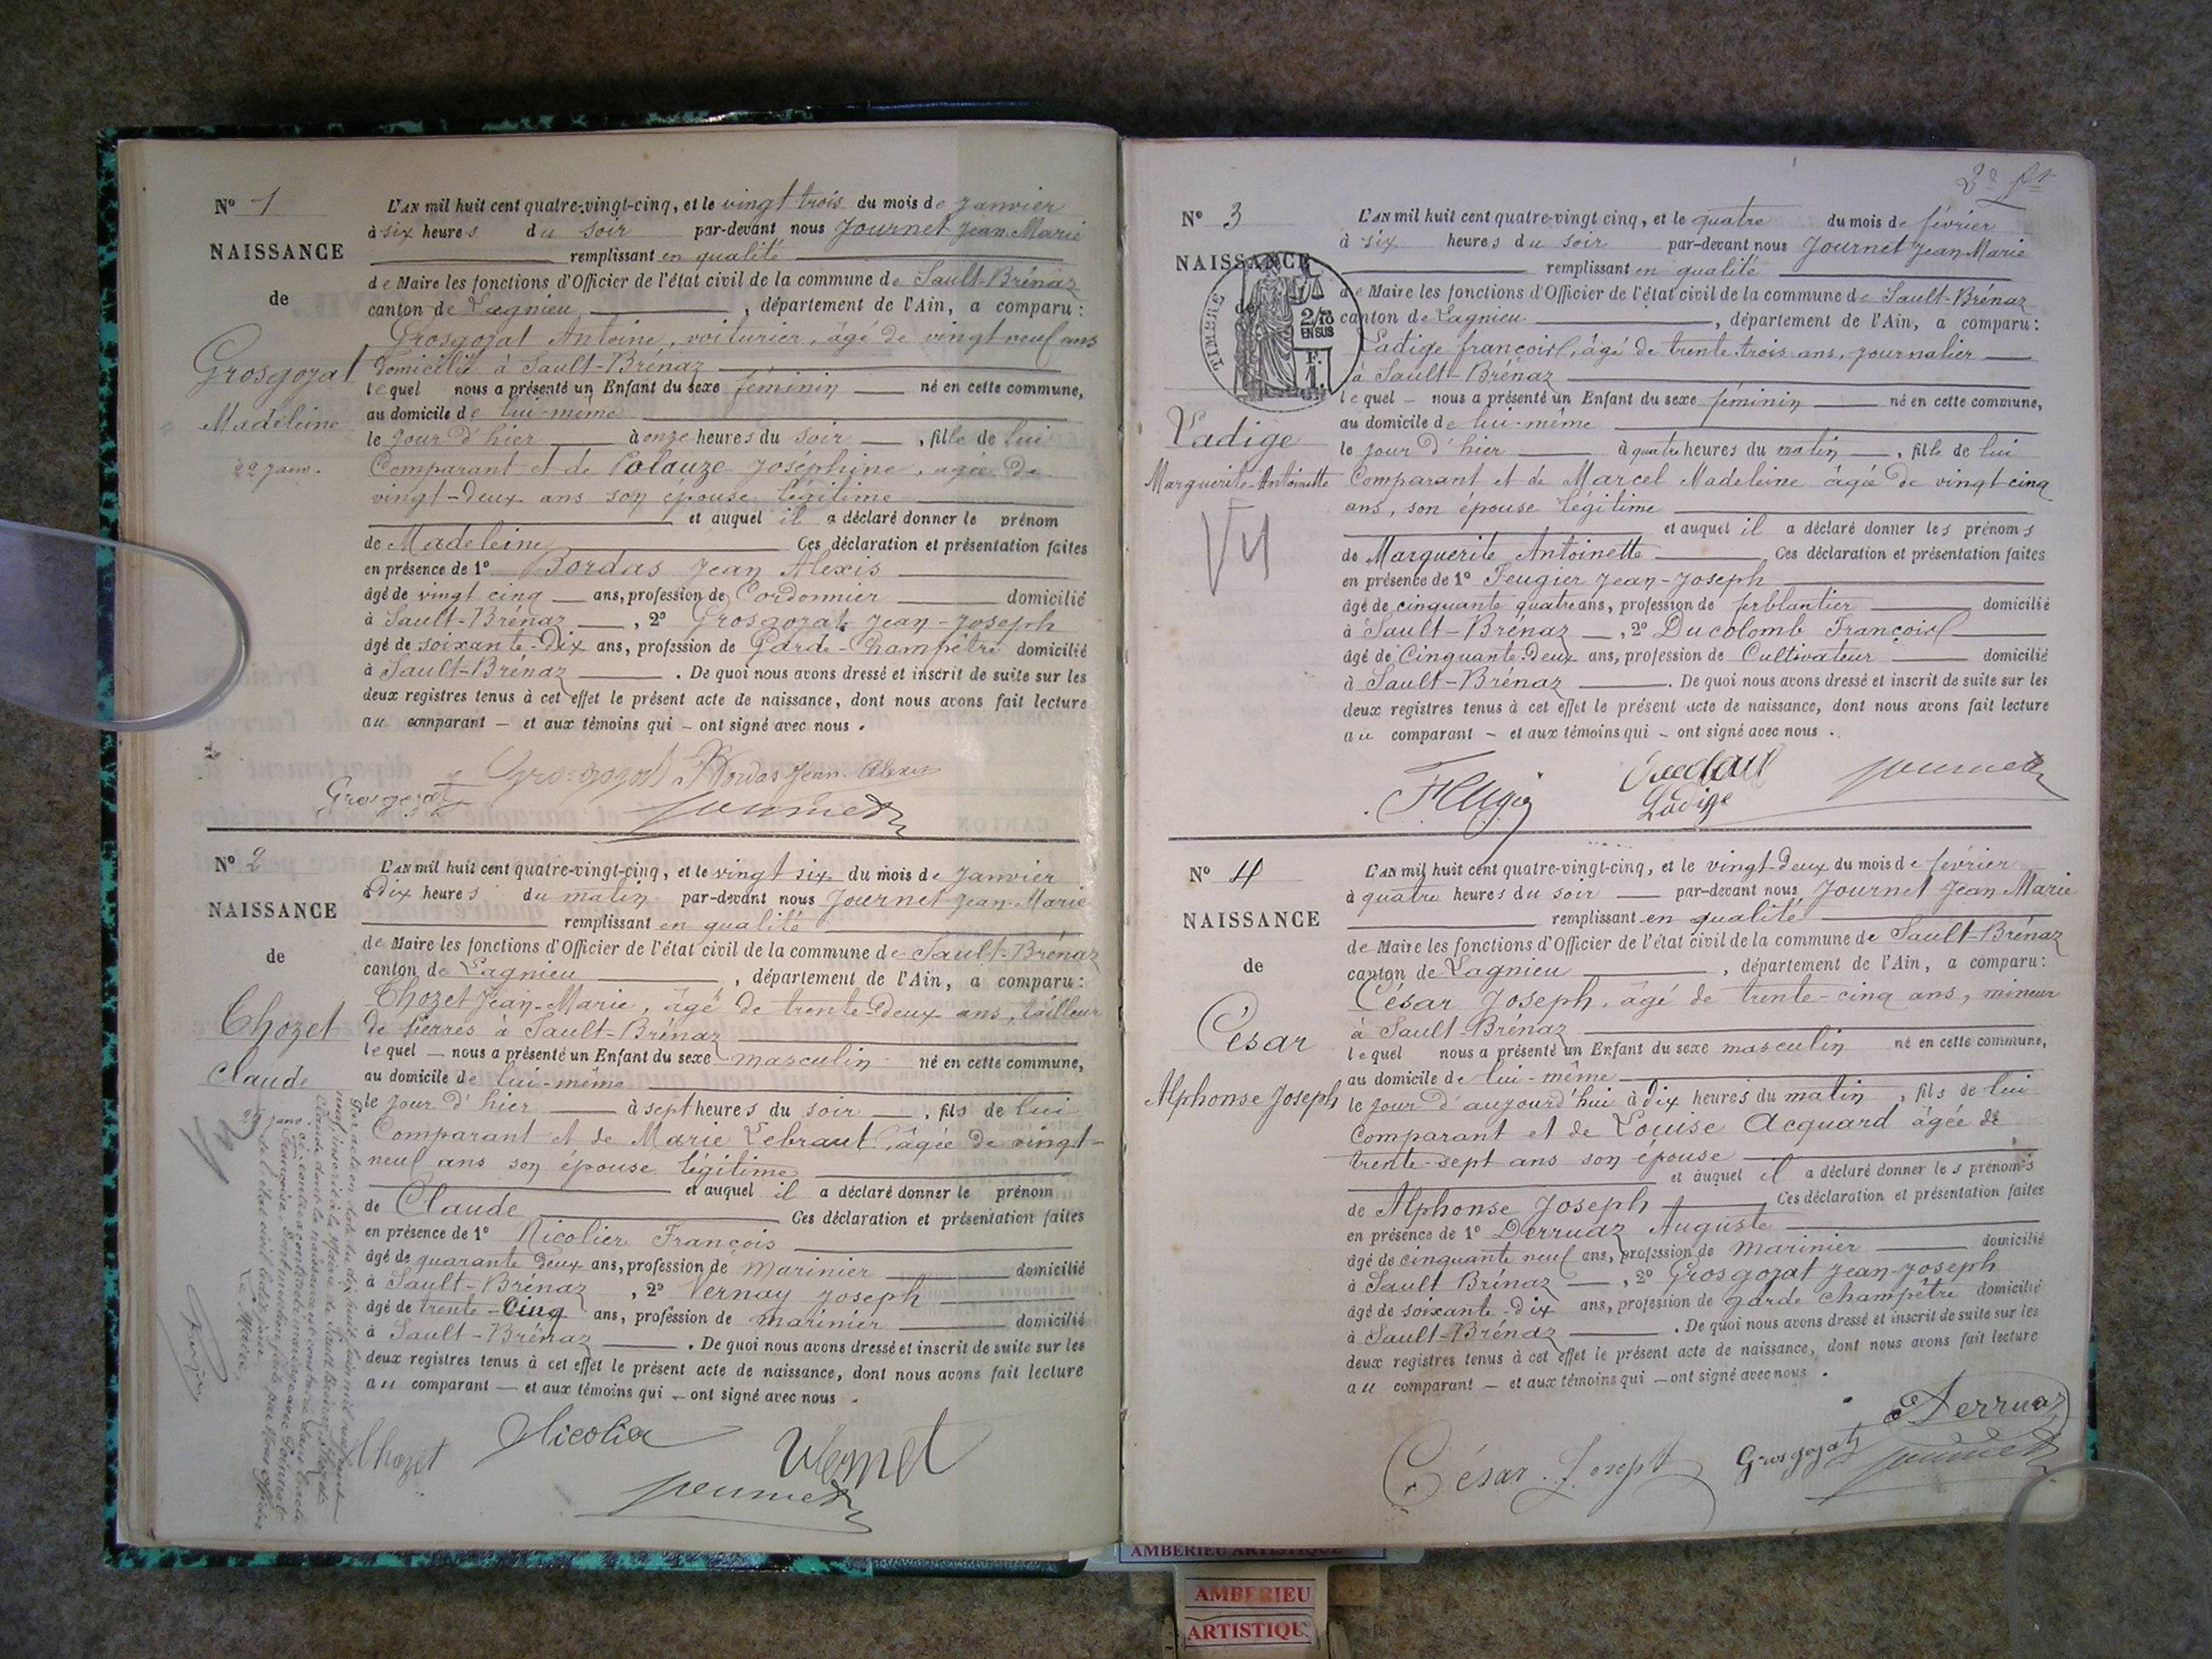 N° 1
NAISSANCE
de
Grosgojat
Madeleine
22 janv.
L'AN mil huit cent quatre-vingt-cinq, et le vingt trois du mois de Janvier
à six heures du soir par-devant nous Journet Jean Marie
remplissant en qualité
de Maire les fonctions d'Officier de l'état civil de la commune de Sault-Brénaz
canton de Lagnieu, département de l'Ain, a comparu:
Grosgojat Antoine, voiturier, âgé de vingt neuf ans
domicilié à Sault-Brénaz
lequel nous a présenté un Enfant du sexe féminin né en cette commune,
au domicile de lui-même
le jour d'hier à onze heures du soir, fille de lui
Comparant et de Polauze Joséphine, agée de
vingt-deux ans son épouse légitime
et auquel il a déclaré donner le prénom
de Madeleine Ces déclaration et présentation faites
en présence de 1° Bordas Jean Alexis
âgé de vingt cinq ans, profession de Cordonnier domicilié
à Sault-Brénaz, 2° Grosgojat Jean-Joseph
âgé de soixante-dix ans, profession de Garde-Champêtre domicilié
à Sault-Brénaz. De quoi nous avons dressé et inscrit de suite sur les
deux registres tenus à cet effet le présent acte de naissance, dont nous avons fait lecture
au comparant — et aux témoins qui — ont signé avec nous.
Grosgojat Bordas Jean Alexis
Grosgojat Journet
N° 2
NAISSANCE
de
Chozet
Claude
L'AN mil huit cent quatre-vingt-cinq, et le vingt six du mois de Janvier
à dix heures du matin par-devant nous Journet Jean-Marie
remplissant en qualité
de Maire les fonctions d'Officier de l'état civil de la commune de Sault-Brénaz
canton de Lagnieu, département de l'Ain, a comparu:
Chozet Jean-Marie, âgé de trente-deux ans, tailleur
de pierres à Sault-Brénaz
lequel — nous a présenté un Enfant du sexe masculin né en cette commune,
au domicile de lui-même
le jour d'hier à sept heures du soir, fils de lui
Comparant et de Marie Lebraut, âgée de vingt-
neuf ans son épouse légitime
et auquel il a déclaré donner le prénom
de Claude Ces déclaration et présentation faites
en présence de 1° Nicolier François
âgé de quarante deux ans, profession de marinier domicilié
à Sault-Brénaz, 2° Vernay Joseph
âgé de trente-cinq ans, profession de marinier domicilié
à Sault-Brénaz. De quoi nous avons dressé et inscrit de suite sur les
deux registres tenus à cet effet le présent acte de naissance, dont nous avons fait lecture
au comparant — et aux témoins qui — ont signé avec nous.
Chozet Nicolier
Journet
N° 3
NAISSANCE
de
TIMBRE
2/10
EN SUS
F.
1.
Ladige
Marguerite-Antoinette
L'AN mil huit cent quatre-vingt cinq, et le quatre du mois de février
à six heures du soir par-devant nous Journet Jean Marie
remplissant en qualité
de Maire les fonctions d'Officier de l'état civil de la commune de Sault-Brénaz
canton de Lagnieu, département de l'Ain, a comparu:
Ladige françois, âgé de trente trois ans, journalier
à Sault-Brénaz
lequel — nous a présenté un Enfant du sexe féminin né en cette commune,
au domicile de lui-même
le jour d'hier à quatre heures du matin, fille de lui
Comparant et de Marcel Madeleine âgée de vingt-cinq
ans, son épouse légitime
et auquel il a déclaré donner les prénoms
de Marguerite Antoinette Ces déclaration et présentation faites
en présence de 1° Feugier Jean-Joseph
âgé de cinquante quatre ans, profession de ferblantier domicilié
à Sault-Brénaz, 2° Ducolomb François
âgé de Cinquante-Deux ans, profession de Cultivateur domicilié
à Sault-Brénaz. De quoi nous avons dressé et inscrit de suite sur les
deux registres tenus à cet effet le présent acte de naissance, dont nous avons fait lecture
au comparant — et aux témoins qui — ont signé avec nous.
Journet
Ladige
N° 4
NAISSANCE
de
César
Alphonse Joseph
L'AN mil huit cent quatre-vingt-cinq, et le vingt-deux du mois de février
à quatre heures du soir par-devant nous Journet Jean Marie
remplissant en qualité
de Maire les fonctions d'Officier de l'état civil de la commune de Sault-Brénaz
canton de Lagnieu, département de l'Ain, a comparu:
César Joseph, âgé de trente-cinq ans, mineur
à Sault-Brénaz
lequel nous a présenté un Enfant du sexe masculin né en cette commune,
au domicile de lui-même
le jour d'aujourd'hui à dix heures du matin, fils de lui
Comparant et de Louise Acquard âgée de
trente-sept ans son épouse
et auquel il a déclaré donner les prénoms
de Alphonse Joseph Ces déclaration et présentation faites
en présence de 1° Derruaz Auguste
âgé de cinquante neuf ans, profession de marinier domicilié
à Sault Brénaz, 2° Grosgojat Jean-Joseph
âgé de soixante-dix ans, profession de garde champêtre domicilié
à Sault-Brénaz. De quoi nous avons dressé et inscrit de suite sur les
deux registres tenus à cet effet le présent acte de naissance, dont nous avons fait lecture
au comparant — et aux témoins qui — ont signé avec nous.
Derruaz
César Joseph Grosgojat Journet
AMBERIEU ARTISTIQUE
AMBERIEU
ARTISTIQU